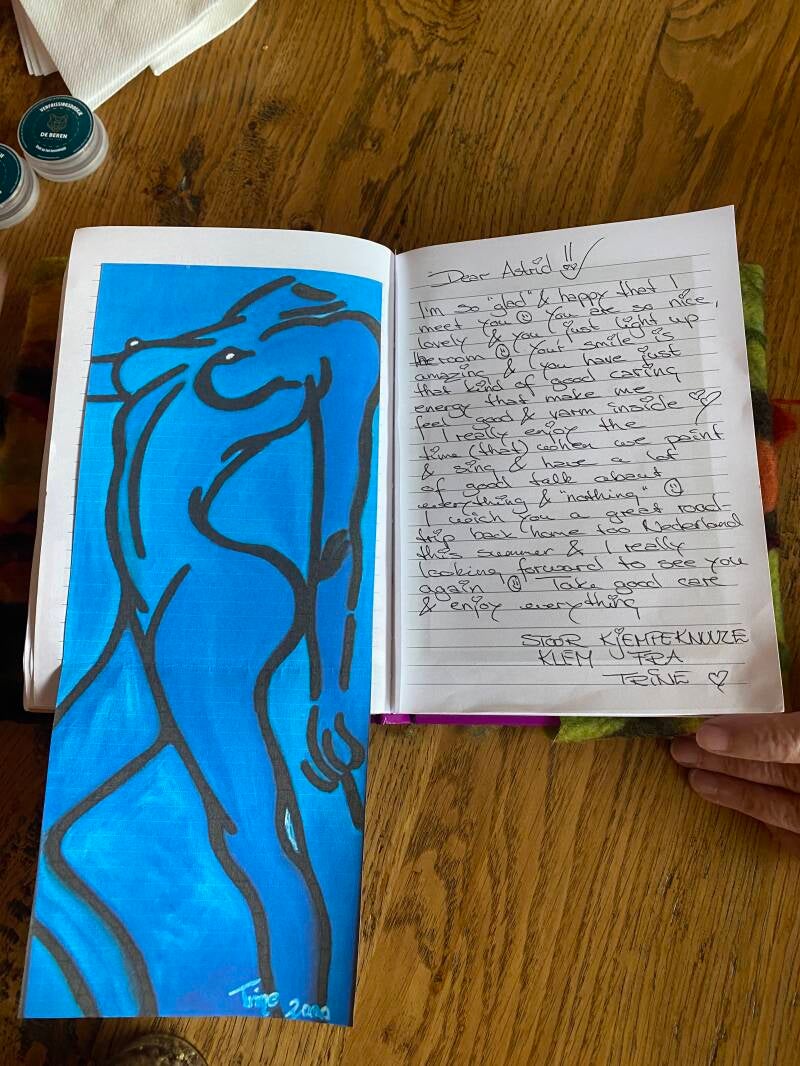 VERFRISSINGSDOEKJE
DE BEREN
Dear Astrid !!
I'm so "glad" & happy that I
meet you ☺ You are so nice,
lovely & you just light up
the room ☺ Your smile is
amazing & you have just
that kind of good caring
energy that make me
feel good & varm inside ♡♡
I really enjoy the
time (that) when we paint
& sing & have a lot
of good talk about
everything & "nothing" ☺
I wich you a great road-
trip back home too Nederland
this summer & I really
looking forward to see you
again ☺ Take good care
& enjoy everything
STOOR KJEMPEKNUUZE
KLEM FRA
TRINE ♡
Trine 2020